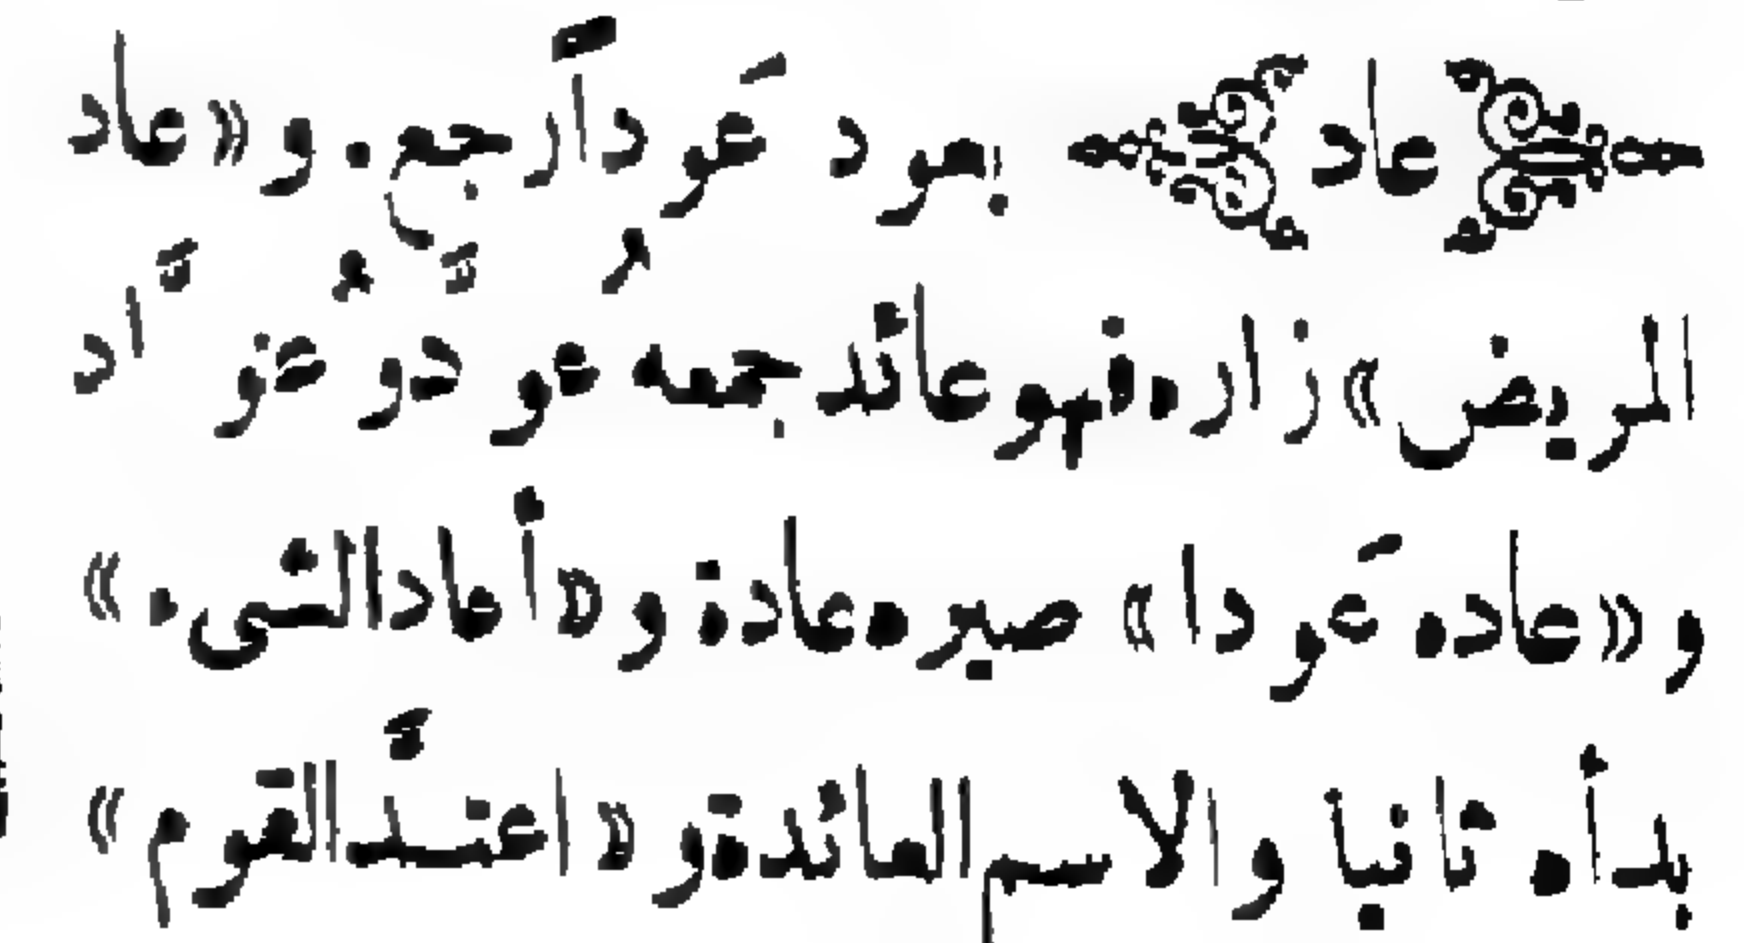 عاد يعود عَودآر جع. و «عاد
المريض» زاره فهو عائد جمعه عُوَّد وعُوَّاد
و «عاده عَودا» صيره عادة و «أعاد الشىء»
بدأه ثانيا والاسم العائدة و «اعتدَّ القوم»